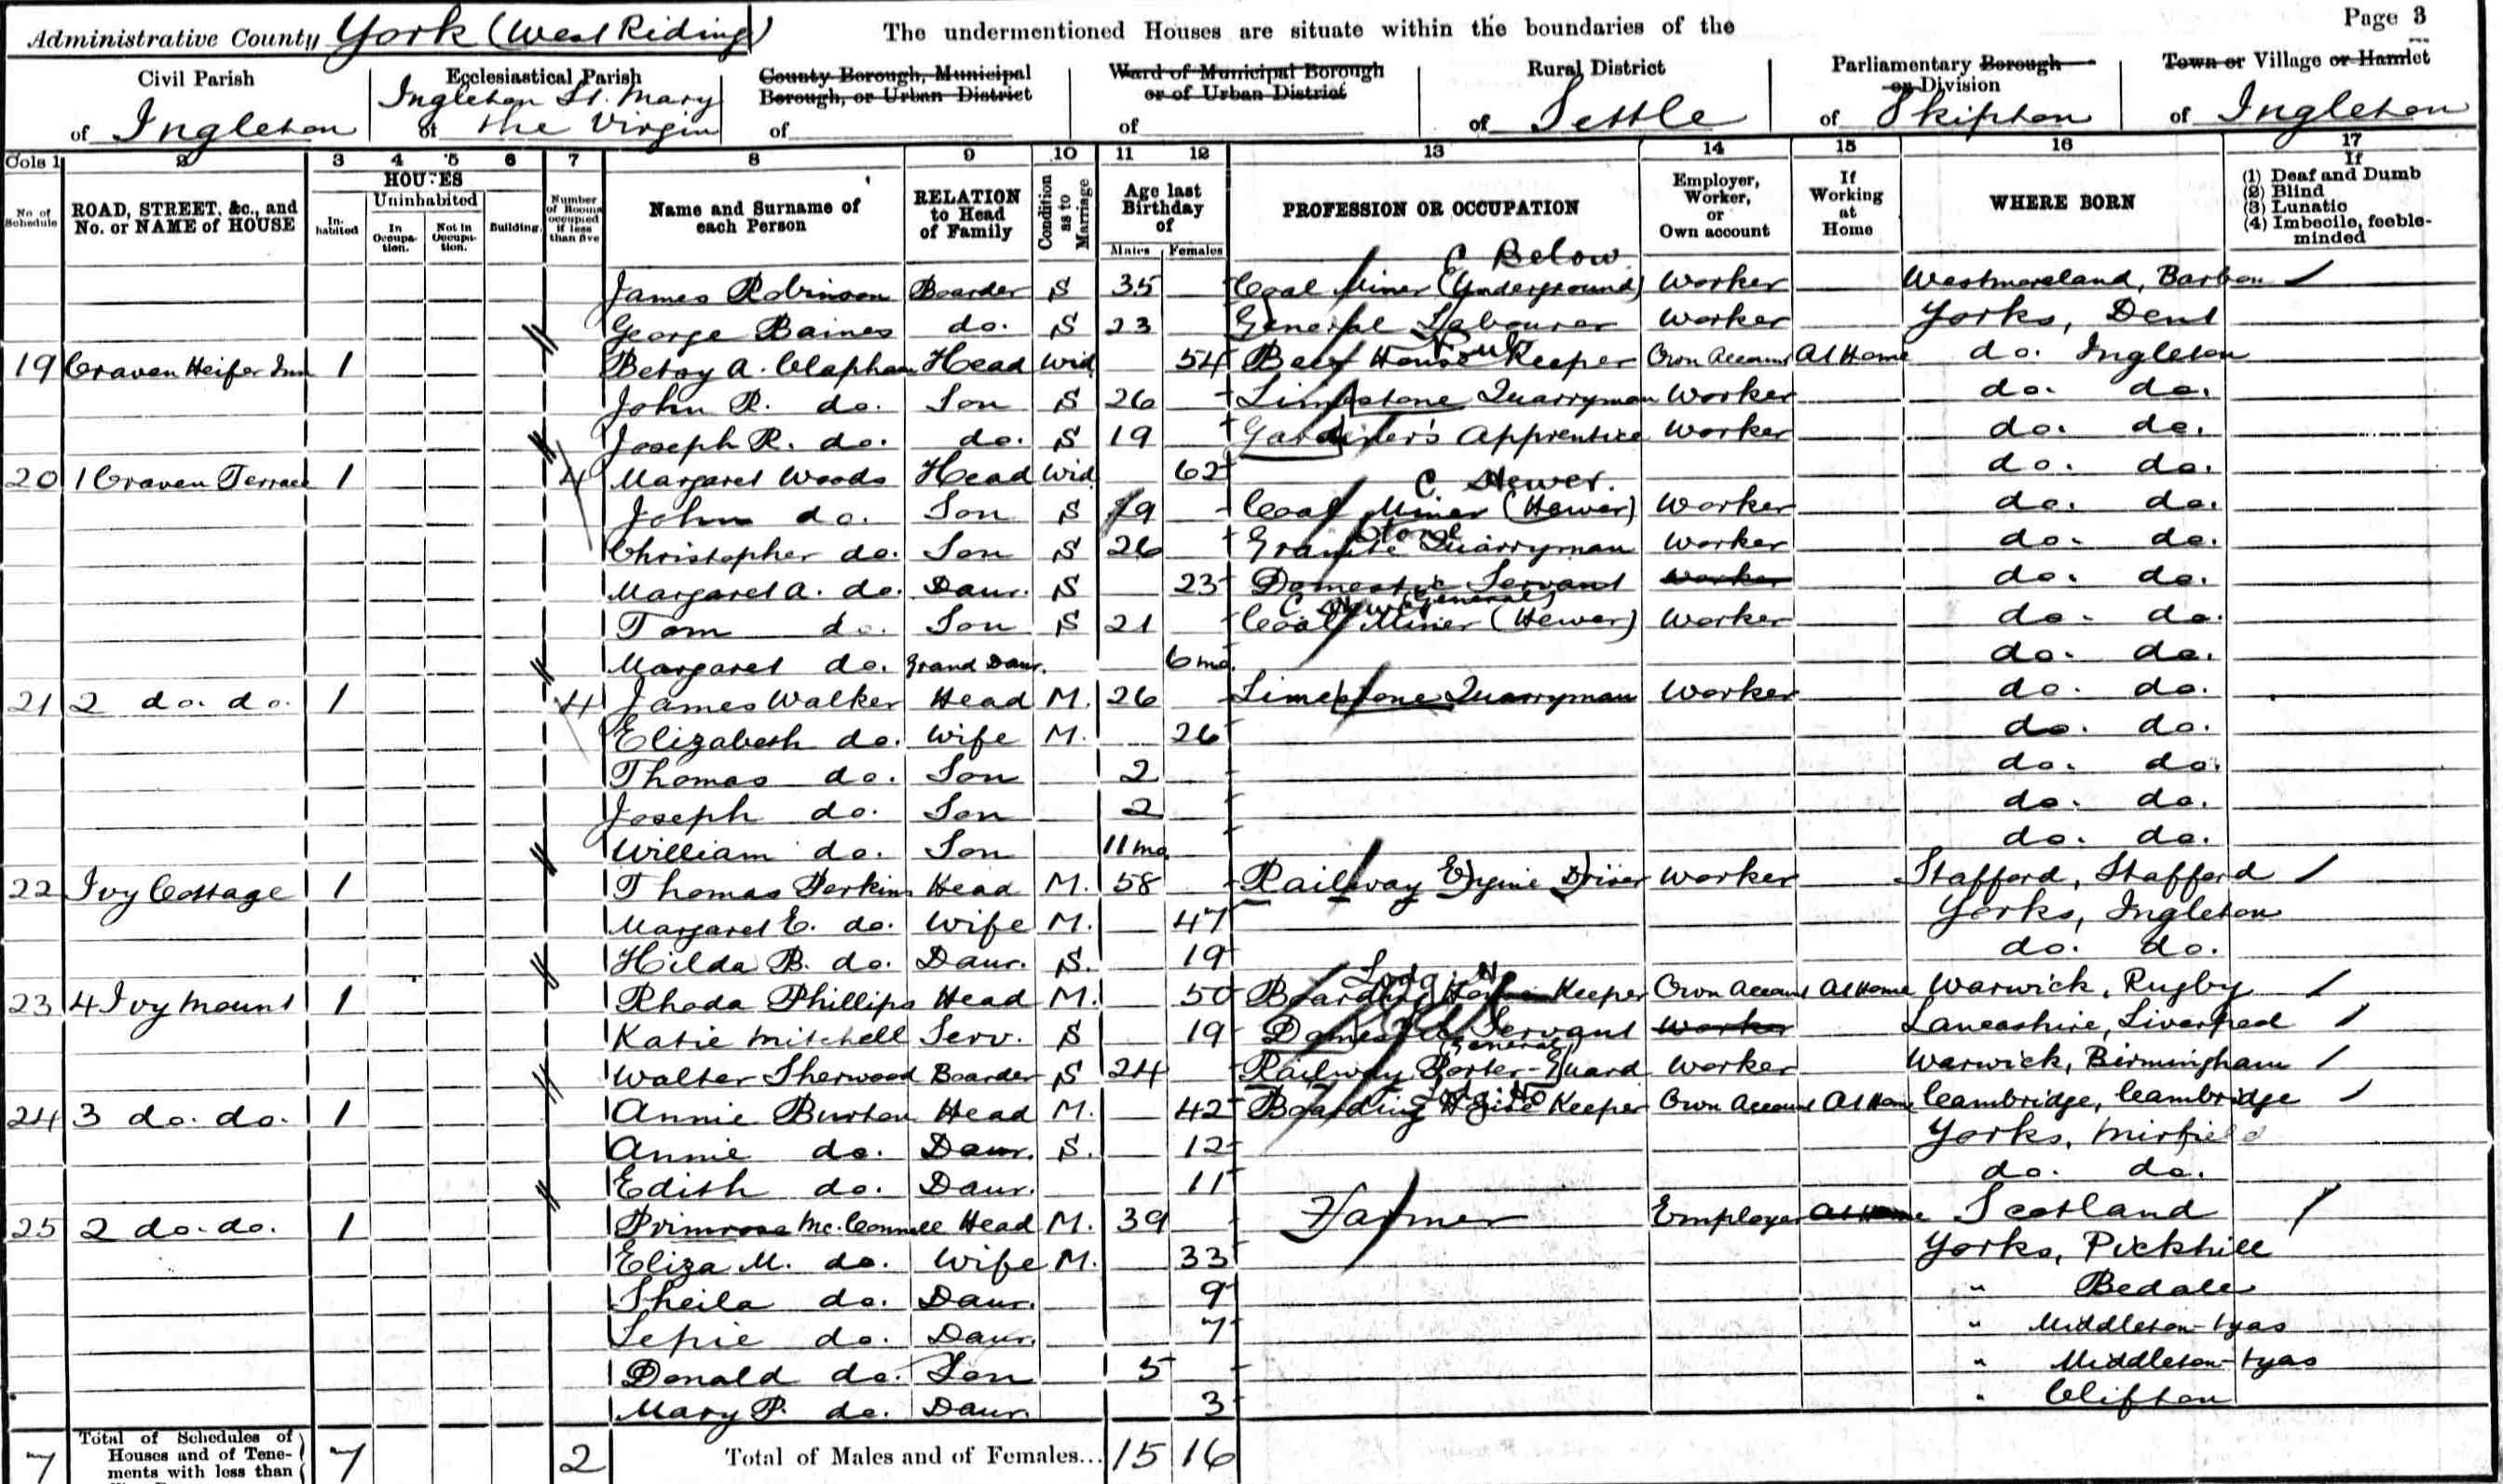 Page 3
Administrative County York (West Riding) The undermentioned Houses are situate within the boundaries of the
Civil Parish Ecclesiastical Parish County Borough, Municipal Borough, or Urban District Ward of Municipal Borough or of Urban District Rural District Parliamentary Borough or Division Town or Village or Hamlet
of Ingleton of Ingleton St. Mary the Virgin of of of Settle of Skipton of Ingleton
Cols 1 2 3 4 5 6 7 8 9 10 11 12 13 14 15 16 17
No of Schedule ROAD, STREET, &c., and No. or NAME of HOUSE HOUSES In-habited Uninhabited In Occupa-tion. Not in Occupa-tion. Building. Number of Rooms occupied if less than five Name and Surname of each Person RELATION to Head of Family Condition as to Marriage Age last Birthday of Males Females PROFESSION OR OCCUPATION Employer, Worker, or Own account If Working at Home WHERE BORN If (1) Deaf and Dumb (2) Blind (3) Lunatic (4) Imbecile, feeble-minded
C Below
James Robinson Boarder S 35 Coal Miner (Underground) Worker Westmoreland, Barbon
George Baines do. S 23 General Labourer Worker Yorks, Dent
19 Craven Heifer Inn 1 Betsy A. Clapham Head Wid 54 Beer House Keeper Own Account At Home do. Ingleton
John R. do. Son S 26 Limestone Quarryman Worker do. do.
Joseph R. do. do. S 19 Gardiner's Apprentice Worker do. do.
20 1 Craven Terrace 1 4 Margaret Woods Head Wid 62 do. do.
C Hewer.
John do. Son S 19 Coal Miner (Hewer) Worker do. do.
Stone
Christopher do. Son S 26 Granite Quarryman Worker do. do.
Margaret A. do. Daur. S 23 Domestic Servant Worker do. do.
(General)
Tom do. Son S 21 Coal Miner (Hewer) Worker do. do.
Margaret do. Grand Daur. 6 mo. do. do.
21 2 do. do. 1 4 James Walker Head M. 26 Limestone Quarryman Worker do. do.
Elizabeth do. Wife M. 26 do. do.
Thomas do. Son 2 do. do.
Joseph do. Son 2 do. do.
William do. Son 11 mo. do. do.
22 Ivy Cottage 1 Thomas Perkins Head M. 58 Railway Engine Driver Worker Stafford, Stafford
Margaret E. do. Wife M. 47 Yorks, Ingleton
Hilda B. do. Daur. S. 19 do. do.
Lodg. H
23 4 Ivy Mount 1 Rhoda Phillips Head M. 50 Boarding House Keeper Own Account At Home Warwick, Rugby
Katie Mitchell Serv. S 19 Domestic Servant Worker Lancashire, Liverpool
(General)
Walter Sherwood Boarder S 24 Railway Porter-Guard Worker Warwick, Birmingham
Lodg. Ho
24 3 do. do. 1 Annie Burton Head M. 42 Boarding House Keeper Own Account At Home Cambridge, Cambridge
Annie do. Daur. S. 12 Yorks, Mirfield
Edith do. Daur. 11 do. do.
25 2 do. do. 1 Primrose Mc.Connell Head M. 39 Farmer Employer At Home Scotland
Eliza M. do. Wife M. 33 Yorks, Pickhill
Sheila do. Daur. 9 " Bedale
do. Daur. 7 " Middleton-tyas
Donald do. Son 5 " Middleton-tyas
Mary P. do. Daur. 3 " Clifton
7 Total of Schedules of Houses and of Tene-ments with less than 7 2 Total of Males and of Females... 15 16